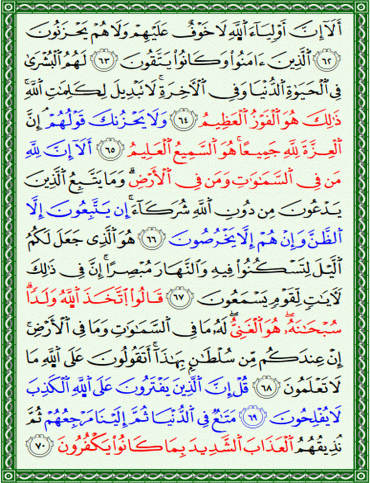 أَلَآ إِنَّ أَوْلِيَآءَ ٱللَّهِ لَا خَوْفٌ عَلَيْهِمْ وَلَا هُمْ يَحْزَنُونَ
﴿٦٢﴾ ٱلَّذِينَ ءَامَنُوا۟ وَكَانُوا۟ يَتَّقُونَ ﴿٦٣﴾ لَهُمُ ٱلْبُشْرَىٰ
فِى ٱلْحَيَوٰةِ ٱلدُّنْيَا وَفِى ٱلْءَاخِرَةِ ۚ لَا تَبْدِيلَ لِكَلِمَٰتِ ٱللَّهِ ۚ
ذَٰلِكَ هُوَ ٱلْفَوْزُ ٱلْعَظِيمُ ﴿٦٤﴾ وَلَا يَحْزُنكَ قَوْلُهُمْ ۘ إِنَّ
ٱلْعِزَّةَ لِلَّهِ جَمِيعًا ۚ هُوَ ٱلسَّمِيعُ ٱلْعَلِيمُ ﴿٦٥﴾ أَلَآ إِنَّ لِلَّهِ
مَن فِى ٱلسَّمَٰوَٰتِ وَمَن فِى ٱلْأَرْضِ ۗ وَمَا يَتَّبِعُ ٱلَّذِينَ
يَدْعُونَ مِن دُونِ ٱللَّهِ شُرَكَآءَ ۚ إِن يَتَّبِعُونَ إِلَّا
ٱلظَّنَّ وَإِنْ هُمْ إِلَّا يَخْرُصُونَ ﴿٦٦﴾ هُوَ ٱلَّذِى جَعَلَ لَكُمُ
ٱلَّيْلَ لِتَسْكُنُوا۟ فِيهِ وَٱلنَّهَارَ مُبْصِرًا ۚ إِنَّ فِى ذَٰلِكَ
لَءَايَٰتٍ لِّقَوْمٍ يَسْمَعُونَ ﴿٦٧﴾ قَالُوا۟ ٱتَّخَذَ ٱللَّهُ وَلَدًا ۗ
سُبْحَٰنَهُۥ ۖ هُوَ ٱلْغَنِىُّ ۖ لَهُۥ مَا فِى ٱلسَّمَٰوَٰتِ وَمَا فِى ٱلْأَرْضِ ۚ
إِنْ عِندَكُم مِّن سُلْطَٰنٍۭ بِهَٰذَآ ۚ أَتَقُولُونَ عَلَى ٱللَّهِ مَا
لَا تَعْلَمُونَ ﴿٦٨﴾ قُلْ إِنَّ ٱلَّذِينَ يَفْتَرُونَ عَلَى ٱللَّهِ ٱلْكَذِبَ
لَا يُفْلِحُونَ ﴿٦٩﴾ مَتَٰعٌ فِى ٱلدُّنْيَا ثُمَّ إِلَيْنَا مَرْجِعُهُمْ ثُمَّ
نُذِيقُهُمُ ٱلْعَذَابَ ٱلشَّدِيدَ بِمَا كَانُوا۟ يَكْفُرُونَ ﴿٧٠﴾